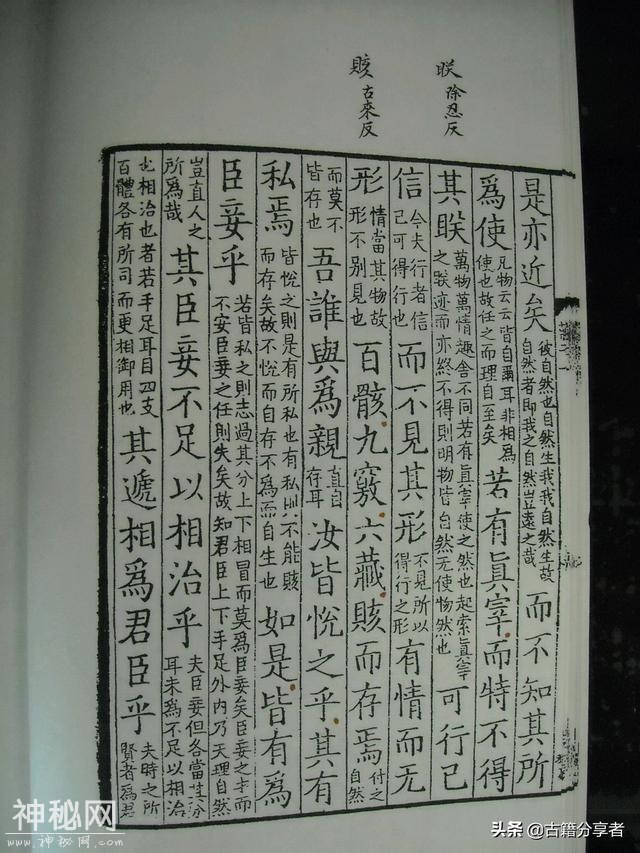 眹除忍反
賅古來反
是亦近矣彼自然也自然生我我自然生故自然者即我之自然豈遠之哉而不知其所
爲使凡物云云皆自爾耳非相爲使也故任之而理自至矣若有眞宰而特不得
其眹萬物萬情趣舍不同若有眞宰使之然也起索眞宰之眹迹而亦終不得則明物皆自然无使物然也可行已
信今夫行者信己可得行也而不見其形不見所以得行之形有情而无
形情當其物故形不別見也百骸九竅六藏賅而存焉付之自然
而莫不皆存也吾誰與爲親直自存耳汝皆悅之乎其有
私焉皆悅之則是有所私也有私則不能賅而存矣故不悅而自存不爲而自生也如是皆有爲
臣妾乎若皆私之則志過其分上下相冒而莫爲臣妾矣臣妾之才而不安臣妾之任則失矣故知君臣上下手足外內乃天理自然
豈直人之所爲哉其臣妾不足以相治乎夫臣妾但各當其分耳未爲不足以相治
也相治也者若手足耳目四支百體各有所司而更相御用也其遞相爲君臣乎夫時之所賢者爲君
神秘网
www.神秘网.com
头条 @古籍分享者